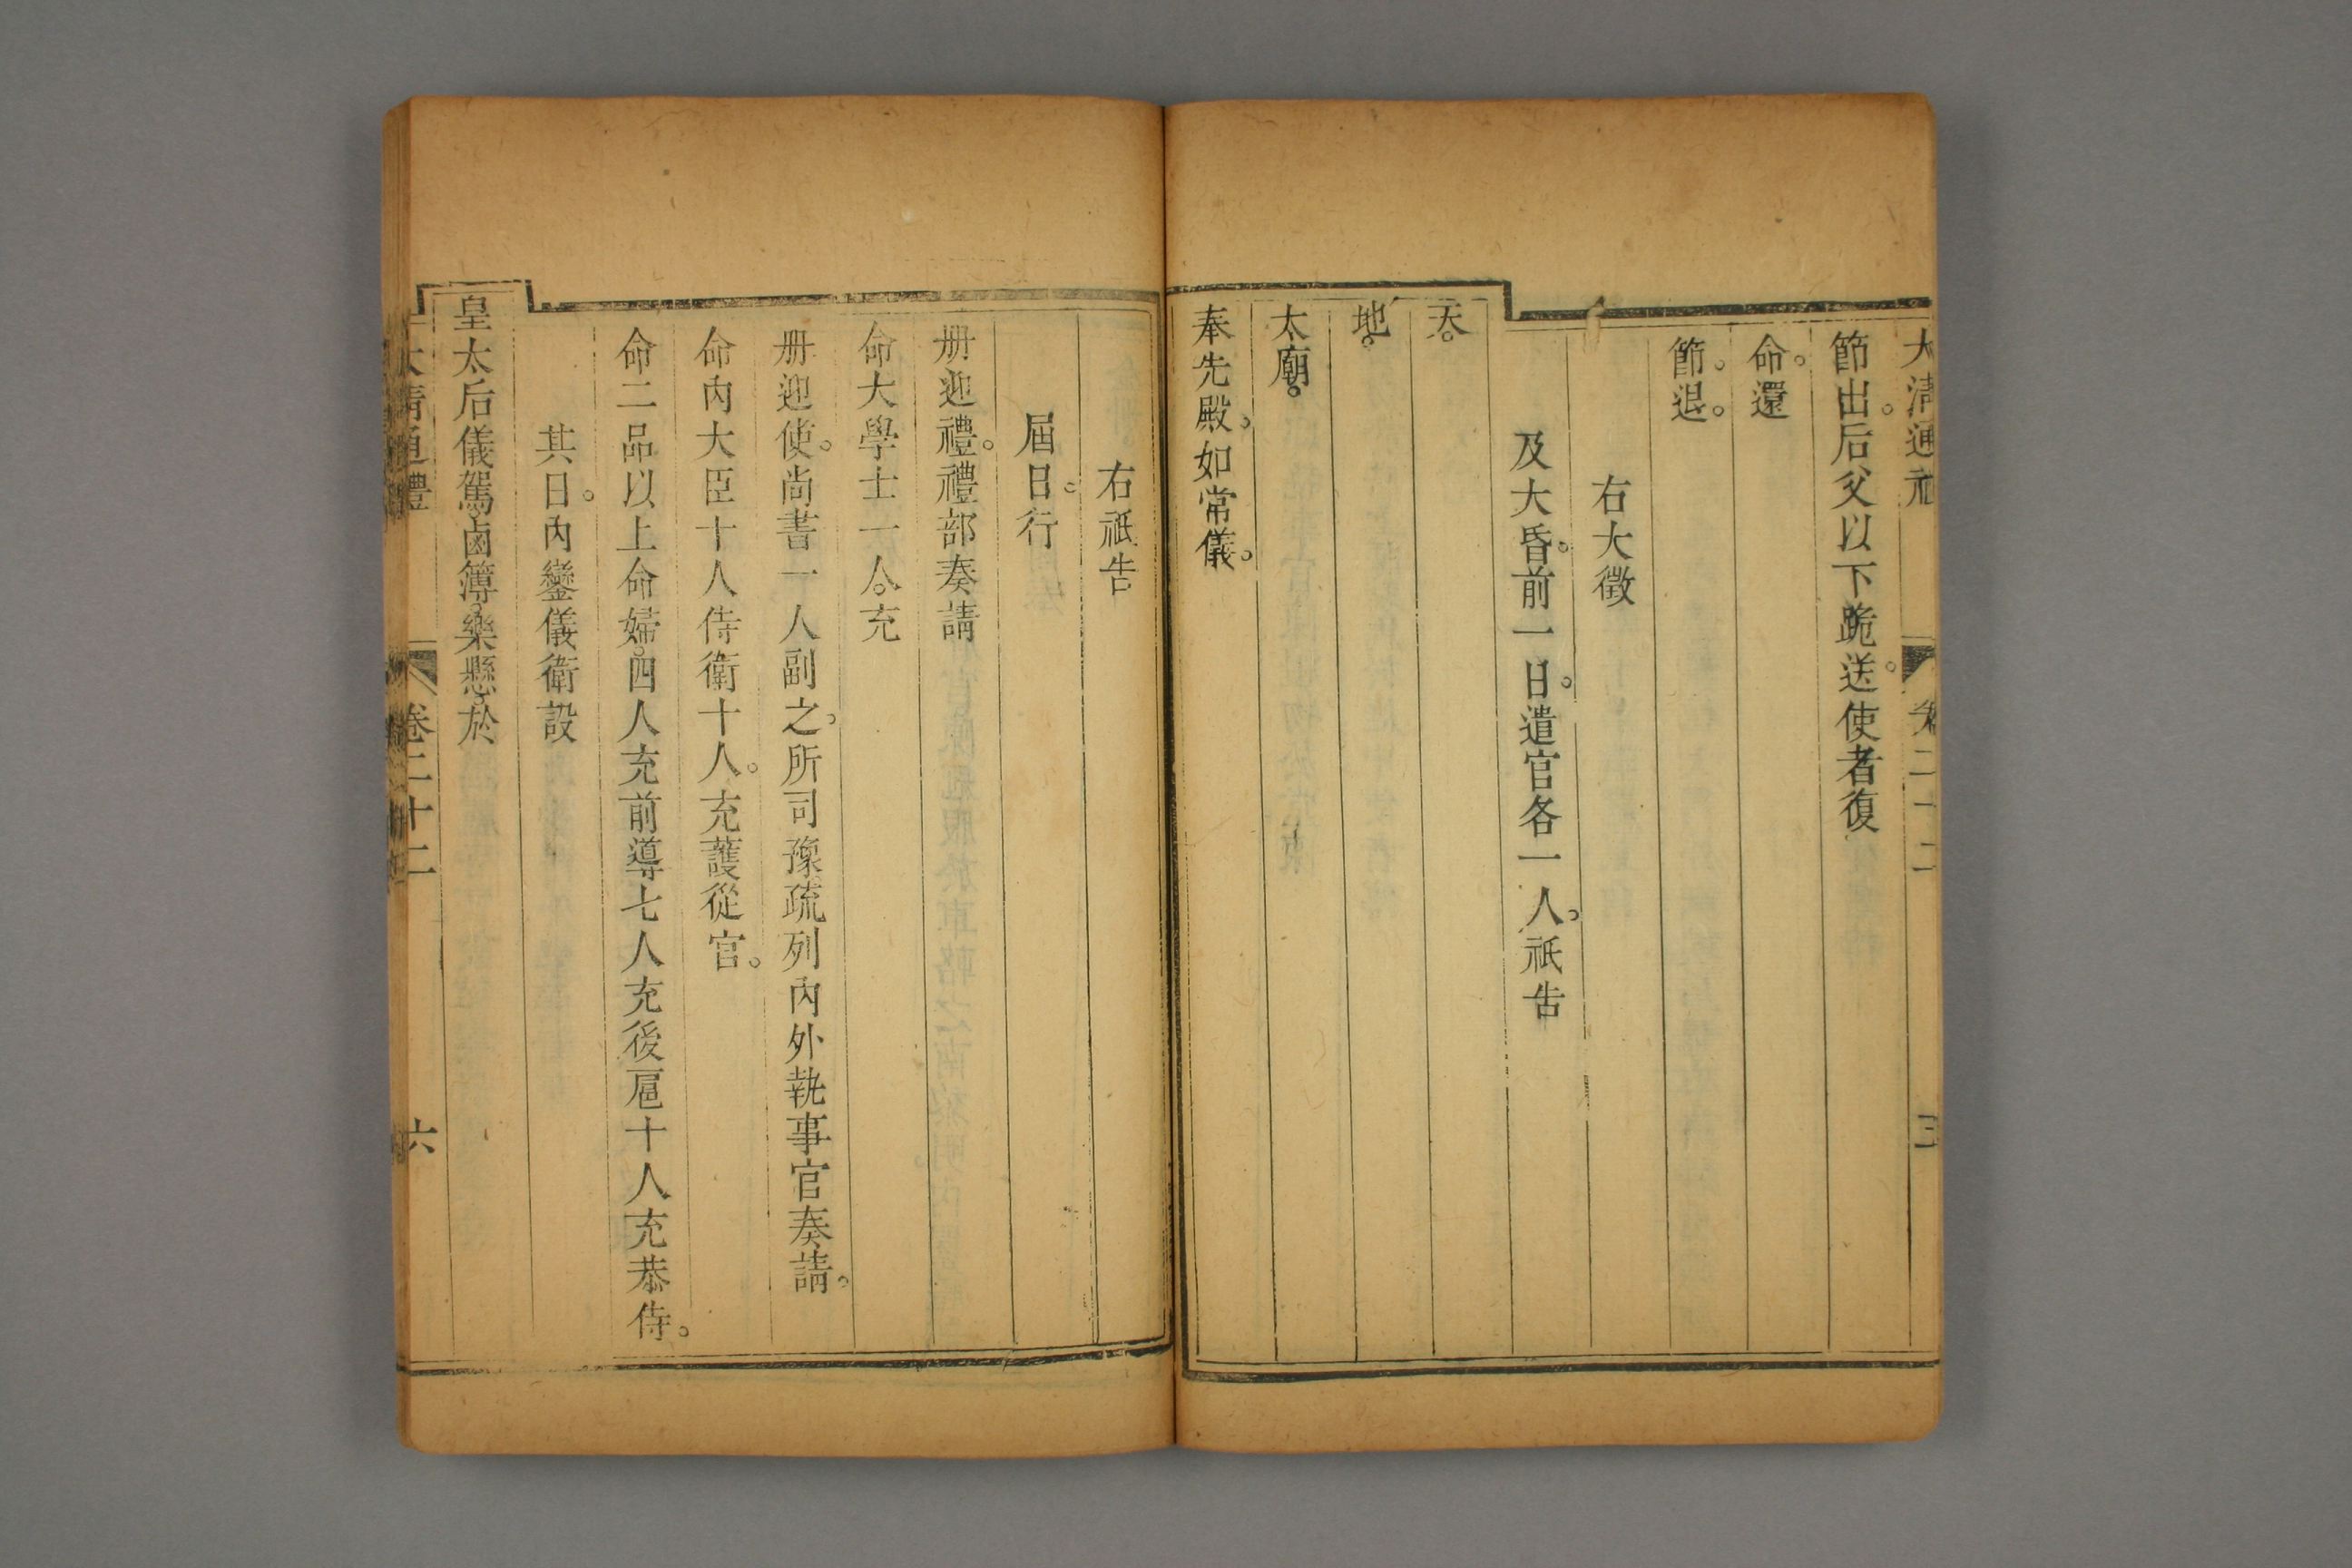 大清通禮 卷二十二 三
節出。后父以下跪送。使者復
命。還
節。退。
右大徵
及大昏。前一日。遣官各一人。祇告
天。
地。
太廟。
奉先殿。如常儀。
右祇告
屆日。行
册迎禮。禮部奏請
命大學士一人。充
册迎使。尚書一人副之。所司豫疏列內外執事官奏請。
命內大臣十人侍衛十人。充護從官。
命二品以上命婦。四人充前導七人充後扈十人充恭侍。
其日。內鑾儀衛設
皇太后儀駕。鹵簿。樂懸。於
大清通禮 卷二十二 六